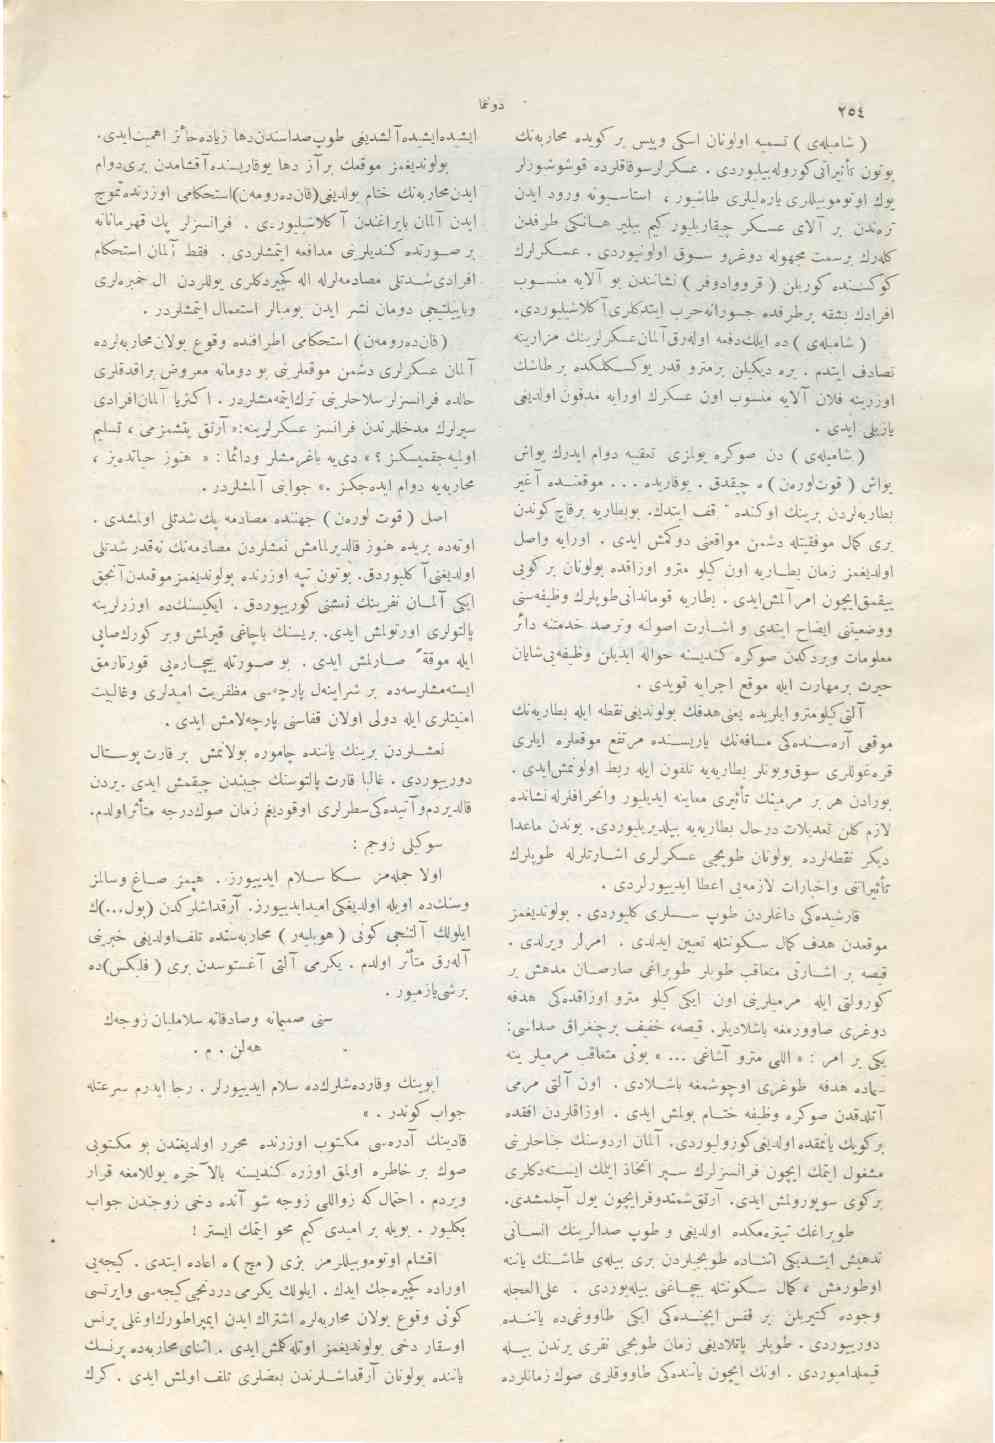 ٢٥٤
دونما
( شامپله‌ی ) تسمیه اولونان اسکی وپیس بر کویده محاربه‌نك
بوتون تأثیراتی کوروله‌بیلییوردی . عسکرلر سوقاقلرده قوشوشیورلر
یوك اوتوموبیللری یاره‌لیلری طاشیور ، استاسیونه ورود ایدن
تره‌ندن بر آلای عسکر چیقاریلیور کیم بیلیر هانکی طرفدن
کله‌رك بر سمت مجهوله دوغرو سوق اولونیوردی . عسکرلرك
کوکسنده کوریلن ( قروادوفر ) نشانندن بو آلایه منسوب
افرادك بشقه برطرفده جسورانه‌حرب ایتدکلری آکلاشیلیوردی.
( شامپله‌ی ) ده ایلك‌دفعه اوله‌رق آلمان‌عسکرلرینك مزارینه
تصادف ایتدم . یره دیکیلن برمترو قدر یوکسکلکده بر طاشك
اوزرینه فلان آلایه منسوب اون عسکرك اورایه مدفون اولدیغی
یازیلی ایدی .
( شامپله‌ی ) دن صوکره یولمزی تعقیبه دوام ایدرك یواش
یواش ( قوت‌لوره‌ن ) ه چیقدق . یوقاریده ... موقعنده آغیر
بطاریه‌لردن برینك اوکنده توقف ایتدك. بوبطاریه برقاچ کوندن
بری کمال موفقیتله دشمن مواقعنی دوکمش ایدی . اورایه واصل
اولدیغمز زمان بطاریه اون کیلو مترو اوزاقده بولونان بر کویی
ییقمق‌ایچون امر آلمش‌ایدی . بطاریه قوماندانی‌طوپلرك وظیفه‌سنی
ووضعیتنی ایضاح ایتدی و اشارت اصولنه وترصد خدمتنه دائر
معلومات ویردکدن صوکره کندیسنه حواله ایدیلن وظیفه‌یی شایان
حیرت برمهارت ایله موقع اجرایه قویدی .
آلتی کیلومترو ایلریده یعنی‌هدفك بولوندیغی نقطه ایله بطاریه‌نك
موقعی آره‌سنده‌کی مسافه‌نك یاریسنده مرتفع موقعلره ایلری
قره‌غوللری سوق‌وبونلر بطاریه‌یه تلفون ایله ربط اولونمش‌ایدی .
بورادن هر بر مرمینك تأثیری معاینه ایدیلیور وانحرافلرله نشانده
لازم کلن تعدیلات درحال بطاریه‌یه بیلدیریلیوردی. بوندن ماعدا
دیکر نقطه‌لرده بولونان طوپجی عسکرلری اشارتلرله طوپلرك
تأثیراتی واخبارات لازمه‌یی اعطا ایدییورلردی .
قارشیده‌کی داغلردن طوپ سسلری کلیوردی . بولوندیغمز
موقعدن هدف کمال سکونتله تعیین ایدلدی . امرلر ویرلدی .
قیصه بر اشارتی متعاقب طوپلر طوپراغی صارصان مدهش بر
کورولتی ایله مرمیلرینی اون ایکی کیلو مترو اوزاقده‌کی هدفه
دوغری صاوورمغه باشلادیلر. قیصه، خفیف برچنغراق صداسی:
یکی بر امر : « اللی مترو آشاغی ... » بونی متعاقب مرمیلر ینه
سماده هدفه طوغری اوچوشمغه باشلادی . اون آلتی مرمی
آتلدقدن صوکره وظیفه ختام بولمش ایدی . اوزاقلردن افقده
برکویك یانمقده اولدیغی کوزولیوردی. آلمان اردوسنك جناحلرینی
مشغول ایتمك ایچون فرانسزلرك سپر اتخاذ ایتمك ایسته‌دکلری
برکوی سوپورولمش ایدی. آرتق شمندوفرایچون یول آچلمشدی.
طوپراغك تیتره‌مکده اولدیغی و طوپ صدالرینك انسانی
تدهیش ایتدیکی اثناده طوپجیلردن بری بیله‌ی طاشنك یاننه
اوطورمش ، کمال سکونتله بیچاغنی بیله‌یوردی . علی‌العجله
وجوده کتیریلن بر قفس ایچنده‌کی ایکی طاووغی‌ده یاننده
دورییوردی . طوپلر پاتلادیغی زمان طوپجی نفری یرندن بیله
قیملدامیوردی . اونك ایچون یاننده‌کی طاووقلری صوك زمانلرده
ایشیده‌ایشیده‌آلشدیغی طوپ‌صداسندن‌دها زیاده‌حائز اهمیت‌ایدی.
بولوندیغمز موقعك بر آز دها یوقاریسنده‌آقشامدن بری‌دوام
ایدن‌محاربه‌نك ختام بولدیغی(فان‌ده‌رومه‌ن)استحکامی اوزرنده‌تموج
ایدن آلمان بایراغندن آکلاشیلیوردی . فرانسزلر پك قهرمانانه
بر صورتده کندیلرینی مدافعه ایتمشلردی . فقط آلمان استحکام
افرادی‌شدتلی مصادمه‌لرله اله کچیردکلری یوللردن ال خمبره‌لری
وبایلتیجی دومان نشر ایدن بومبالر استعمال ایتمشلردر .
(فان‌ده‌رومه‌ن) استحکامی اطرافنده وقوع بولان‌محاربه‌لرده
آلمان عسکرلری دشمن موقعلرینی بو دومانه معروض براقدقلری
حالده فرانسزلر سلاحلرینی ترك‌ایتمه‌مشلردر . اکثریا آلمان‌افرادی
سپرلرك مدخللرندن فرانسز عسکرلرینه:« آرتق یتشمزمی ، تسلیم
اولمیه‌جقمیسکز ؟ » دییه باغرمشلر ودائما : « هنوز حیاتده‌یز ،
محاربه‌یه دوام ایده‌جکز .» جوابنی آلمشلردر .
اصل ( قوت لوره‌ن ) جهتنده مصادمه پك شدتلی اولمشدی .
اوته‌ده بریده هنوز قالدیریلمامش نعشلردن مصادمه‌نك نه‌قدر شدتلی
اولدیغنی آکلیوردق. بوتون تپه اوزرنده بولوندیغمزموقعدن‌آنجق
ایکی آلمان نفرینك نعشنی کورییوردق . ایکیسنك‌ده اوزرلرینه
پالتولری اورتولمش ایدی. بریسنك باجاغی قیرلمش وبر کورك‌صاپی
ایله موقة صارلمش ایدی . بو صورتله بیچاره‌یی قورتارمق
ایسته‌مشلرسه‌ده بر شراپنه‌ل پارچه‌سی مظفریت امیدلری وغالبیت
امنیتلری ایله دولی اولان قفاسنی پارچه‌لامش ایدی .
نعشلردن برینك یاننده چاموره بولانمش بر قارت پوستال
دورییوردی . غالبا قارت پالتوسنك جیبندن چیقمش ایدی .یردن
قالدیردم‌وآتیده‌کی‌سطرلری اوقودیغم زمان صوك‌درجه متأثراولدم.
سوکیلی زوجم :
اولا جمله‌مز سکا سلام ایدییورز . هپمز صاغ وسالمز
وسنك‌ده اویله اولدیغکی امیدایدییورز. آرقداشلرکدن (پول...)ك
ایلولك آلتنجی کونی ( هوبلیه‌ر ) محاربه‌سنده تلف‌اولدیغی خبرینی
آله‌رق متأثر اولدم . یکرمی آلتی آغستوسدن بری ( فلیکس)ده
برشی‌یازمیور .
سنی صمیمانه وصادقانه سلاملیان زوجه‌ك
هه‌لن . م .
ابوینك وقارده‌شلرك‌ده سلام ایدییورلر . رجا ایدرم سرعتله
جواب کوندر . »
قادینك آدره‌سی مکتوب اوزرنده محرر اولدیغندن بو مکتوبی
صوك بر خاطره اولمق اوزره کندیسنه بالآخره یوللامغه قرار
ویردم . احتمال که زواللی زوجه شو آنده دخی زوجندن جواب
بکلیور . بویله بر امیدی کیم محو ایتمك ایستر !
اقشام اوتوموبیللرمز بزی ( مچ ) ه اعاده ایتدی . کیجه‌یی
اوراده کچیره‌جك ایدك . ایلولك یکرمی دردنجی‌کیجه‌سی وایرتسی
کونی وقوع بولان محاربه‌لره اشتراك ایدن ایمپراطورك‌اوغلی پرنس
اوسقار دخی بولوندیغمز اوتله‌کلمش ایدی . اثنای محاربه‌ده پرنسك
یاننده بولونان آرقداشلرندن بعضلری تلف اولمش ایدی . کرك